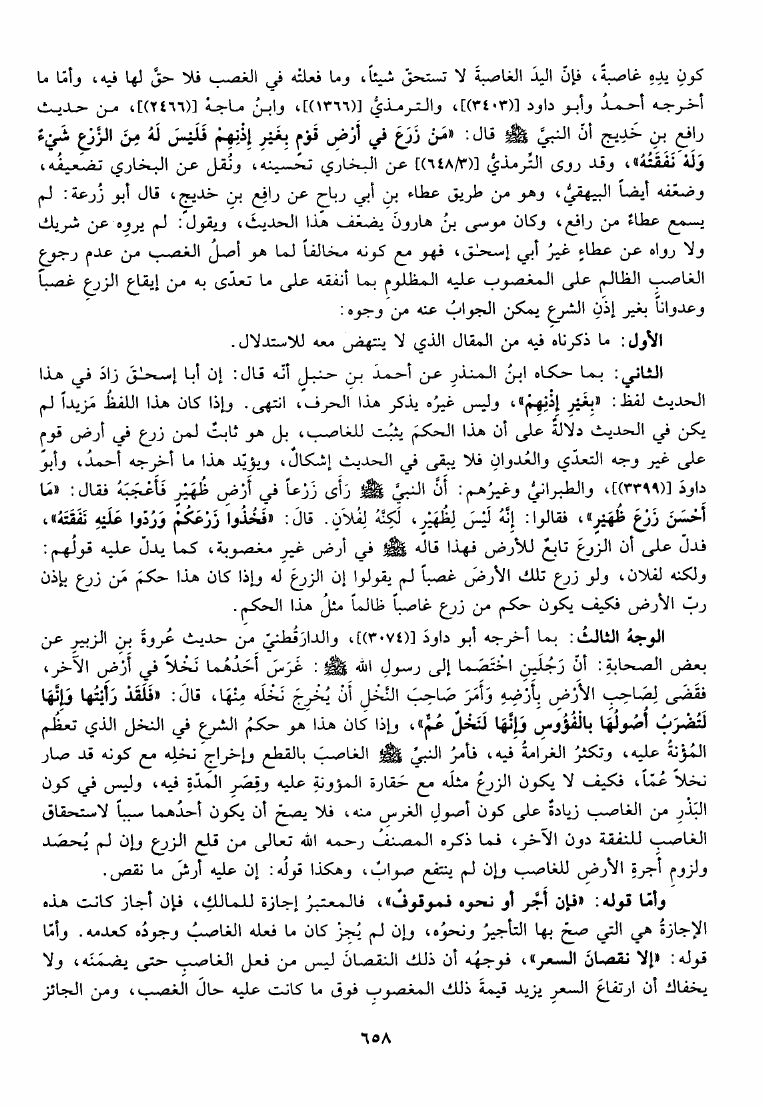 كونِ يدِهِ غاصبةً، فإنّ اليدَ الغاصبةَ لا تستحقّ شيئاً، وما فعلتْه في الغصب فلا حقَّ لها فيه، وأمّا ما
أخرجه أحمدُ وأبو داود [(٣٤٠٣)]، والترمذيُّ [(١٣٦٦)]، وابنُ ماجهْ [(٢٤٦٦)]، من حديث
رافع بنِ خَدِيج أنّ النبيَّ ﷺ قال: «مَنْ زَرَعَ في أَرْضِ قَوْمٍ بِغَيْرِ إِذْنِهِمْ فَلَيْسَ لَهُ مِنَ الزَّرْعِ شَيْءٌ
وَلَهُ نَفَقَتُهُ»، وقد روى التِّرمذيُّ [(٦٤٨/٣)] عن البخاري تحْسينه، ونُقل عن البخاري تضعيفُه،
وضعّفه أيضاً البيهقيُّ، وهو من طريق عطاء بنِ أبي رباحٍ عن رافِع بنِ خديجٍ، قال أبو زُرعة: لم
يسمع عطاءٌ من رافع، وكان موسى بنُ هارونَ يضعّف هذا الحديثَ، ويقول: لم يروِه عن شريك
ولا رواه عن عطاءٍ غيرُ أبي إسحـٰق، فهو مع كونه مخالفاً لما هو أصلُ الغصب من عدم رجوع
الغاصبِ الظالمِ على المغصوب عليه المظلومِ بما أنفقه على ما تعدّى به من إيقاع الزرعِ غصباً
وعدواناً بغير إذْنِ الشرعِ يمكن الجوابُ عنه من وجوه:
الأول: ما ذكرناه فيه من المقال الذي لا ينتهض معه للاستدلال.
الثاني: بما حكاه ابنُ المنذرِ عن أحمدَ بنِ حنبلٍ أنّه قال: إن أبا إسحـٰقَ زادَ في هذا
الحديث لفظَ: «بِغَيْرِ إِذْنِهِمْ»، وليس غيرُه يذكر هذا الحرف، انتهى. وإذا كان هذا اللفظُ مَزيداً لم
يكن في الحديث دلالةٌ على أن هذا الحكمَ يثبُت للغاصب، بل هو ثابتٌ لمن زرع في أرض قوم
على غير وجه التعدّي والعُدوانِ فلا يبقى في الحديث إشكالٌ، ويؤيّد هذا ما أخرجه أحمدُ، وأبو
داودَ [(٣٣٩٩)]، والطبرانيُّ وغيرُهم: أَنَّ النبيَّ ﷺ رَأَى زَرْعاً في أَرْضِ ظُهَيْرٍ فَأَعْجَبَهُ فقال: «مَا
أَحْسَنَ زَرْعَ ظُهَيْرٍ»، فقالوا: إِنَّهُ لَيْسَ لِظُهَيْرٍ، لَكِنَّهُ لِفُلاَنٍ. قالَ: «فَخُذُوا زَرْعَكُمْ وَرُدّوا عَلَيْهِ نَفَقَتَهُ»،
فدلّ على أن الزرعَ تابعٌ للأرض فهذا قاله ﷺ في أرض غيرِ مغصوبة، كما يدلّ عليه قولُهم:
ولكنه لفلان، ولو زرع تلك الأرضَ غصباً لم يقولوا إن الزرعَ له وإذا كان هذا حكمَ مَن زرع بإذن
ربّ الأرض فكيف يكون حكم من زرع غاصباً ظالماً مثلُ هذا الحكمِ.
الوجهُ الثالثُ: بما أخرجه أبو داودَ [(٣٠٧٤)]، والدارَقُطنيّ من حديث عُروةَ بنِ الزبيرِ عن
بعض الصحابةِ: أنّ رَجُلَينِ اخْتَصَما إلى رسولِ الله ﷺ: غَرَسَ أَحَدُهُما نَخْلاً في أَرْضِ الآخَرِ،
فقَضَى لِصَاحِبِ الأَرْضِ بِأَرْضِهِ وَأَمَرَ صَاحِبَ النَّخْلِ أَنْ يُخْرِجَ نَخْلَه مِنْهَا، قالَ: «فَلَقَدْ رَأَيْتُها وَإِنَّهَا
لَتُضْرَبُ أُصُولُهَا بِالْفُؤُوسِ وَإِنَّها لَنَخْلٌ عُمٌّ»، وإذا كان هذا هو حكمُ الشرعِ في النخل الذي تعظُم
المُؤْنةُ عليه، وتكثرُ الغرامةُ فيه، فأمرُ النبيِّ ﷺ الغاصبَ بالقطع وإخراجِ نخلِه مع كونه قد صار
نخلاً عُمّاً، فكيف لا يكون الزرعُ مثلَه مع حَقارة المؤونةِ عليه وقِصَرِ المدّةِ فيه، وليس في كون
البَذْرِ من الغاصب زيادةٌ على كون أصولِ الغرسِ منه، فلا يصحّ أن يكون أحدُهما سبباً لاستحقاق
الغاصبِ للنفقة دون الآخر، فما ذكره المصنفُ رحمه الله تعالى من قلع الزرعِ وإن لم يُحصَد
ولزومِ أجرةِ الأرضِ للغاصب وإن لم ينتفع صوابٌ، وهكذا قولُه: إن عليه أرشَ ما نقص.
وأمّا قوله: «فإن أجَّر أو نحوه فموقوفٌ»، فالمعتبرُ إجازة للمالكِ، فإن أجاز كانت هذه
الإجازةُ هي التي صحّ بها التأجيرُ ونحوُه، وإن لم يُجِزْ كان ما فعله الغاصبُ وجودُه كعدمه. وأمّا
قوله: «إلا نقصانَ السعر»، فوجهُه أن ذلك النقصانَ ليس من فعل الغاصبِ حتى يضمَنَه، ولا
يخفاك أن ارتفاعَ السعرِ يزيد قيمةَ ذلك المغصوبِ فوق ما كانت عليه حالَ الغصب، ومن الجائز
٦٥٨